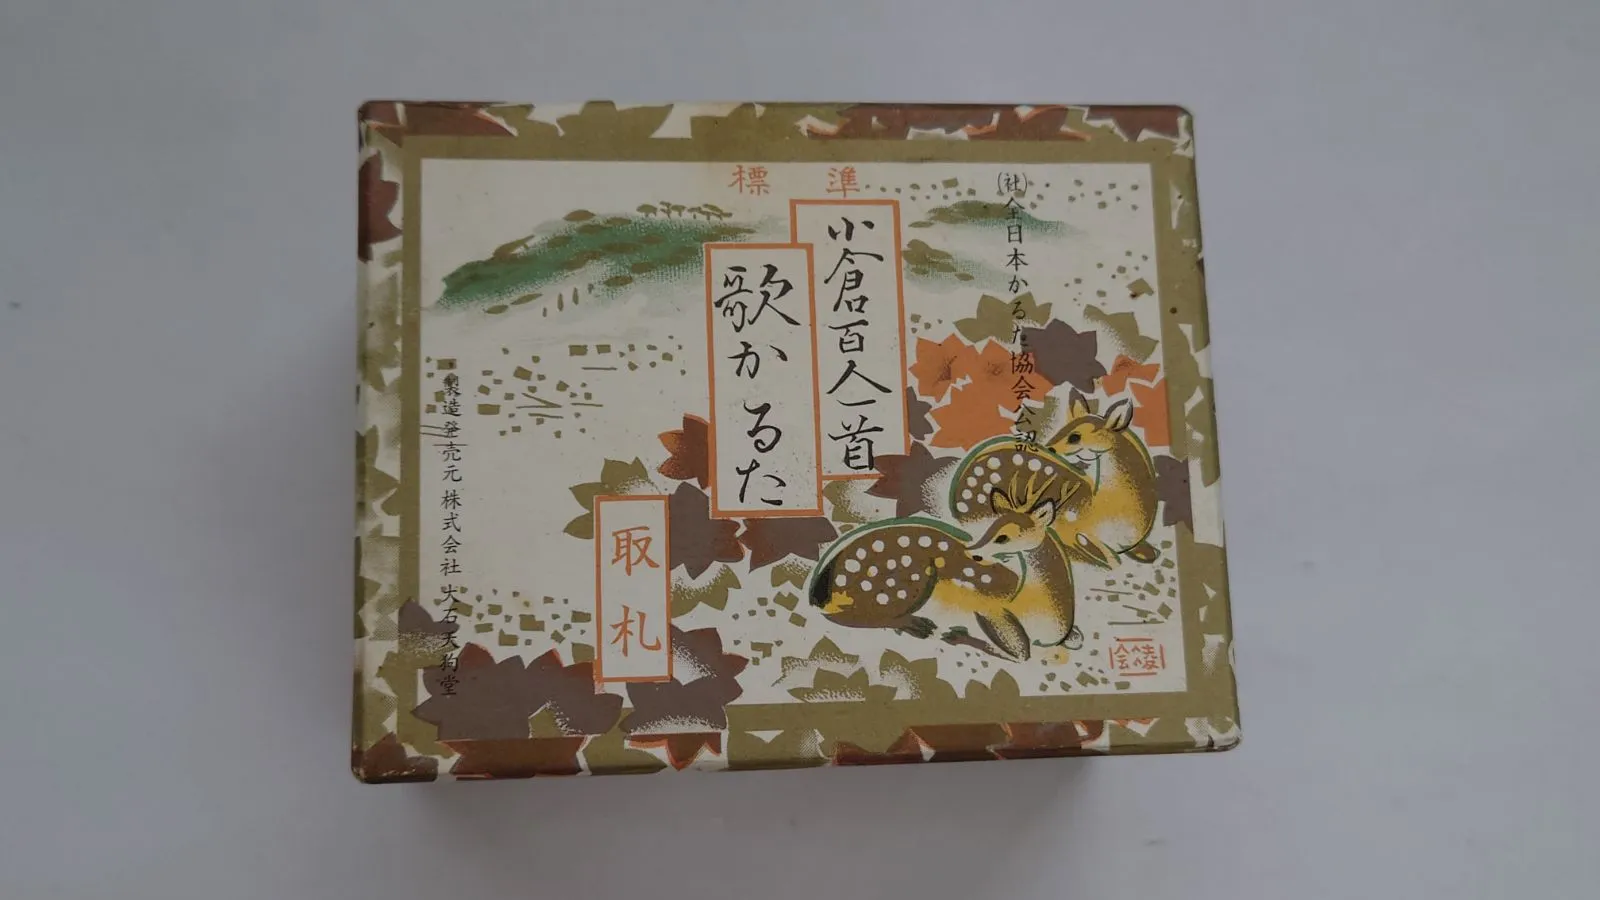 標準
(社)全日本かるた協会公認
小倉百人一首
歌かるた
取札
製造発売元 株式会社 大石天狗堂